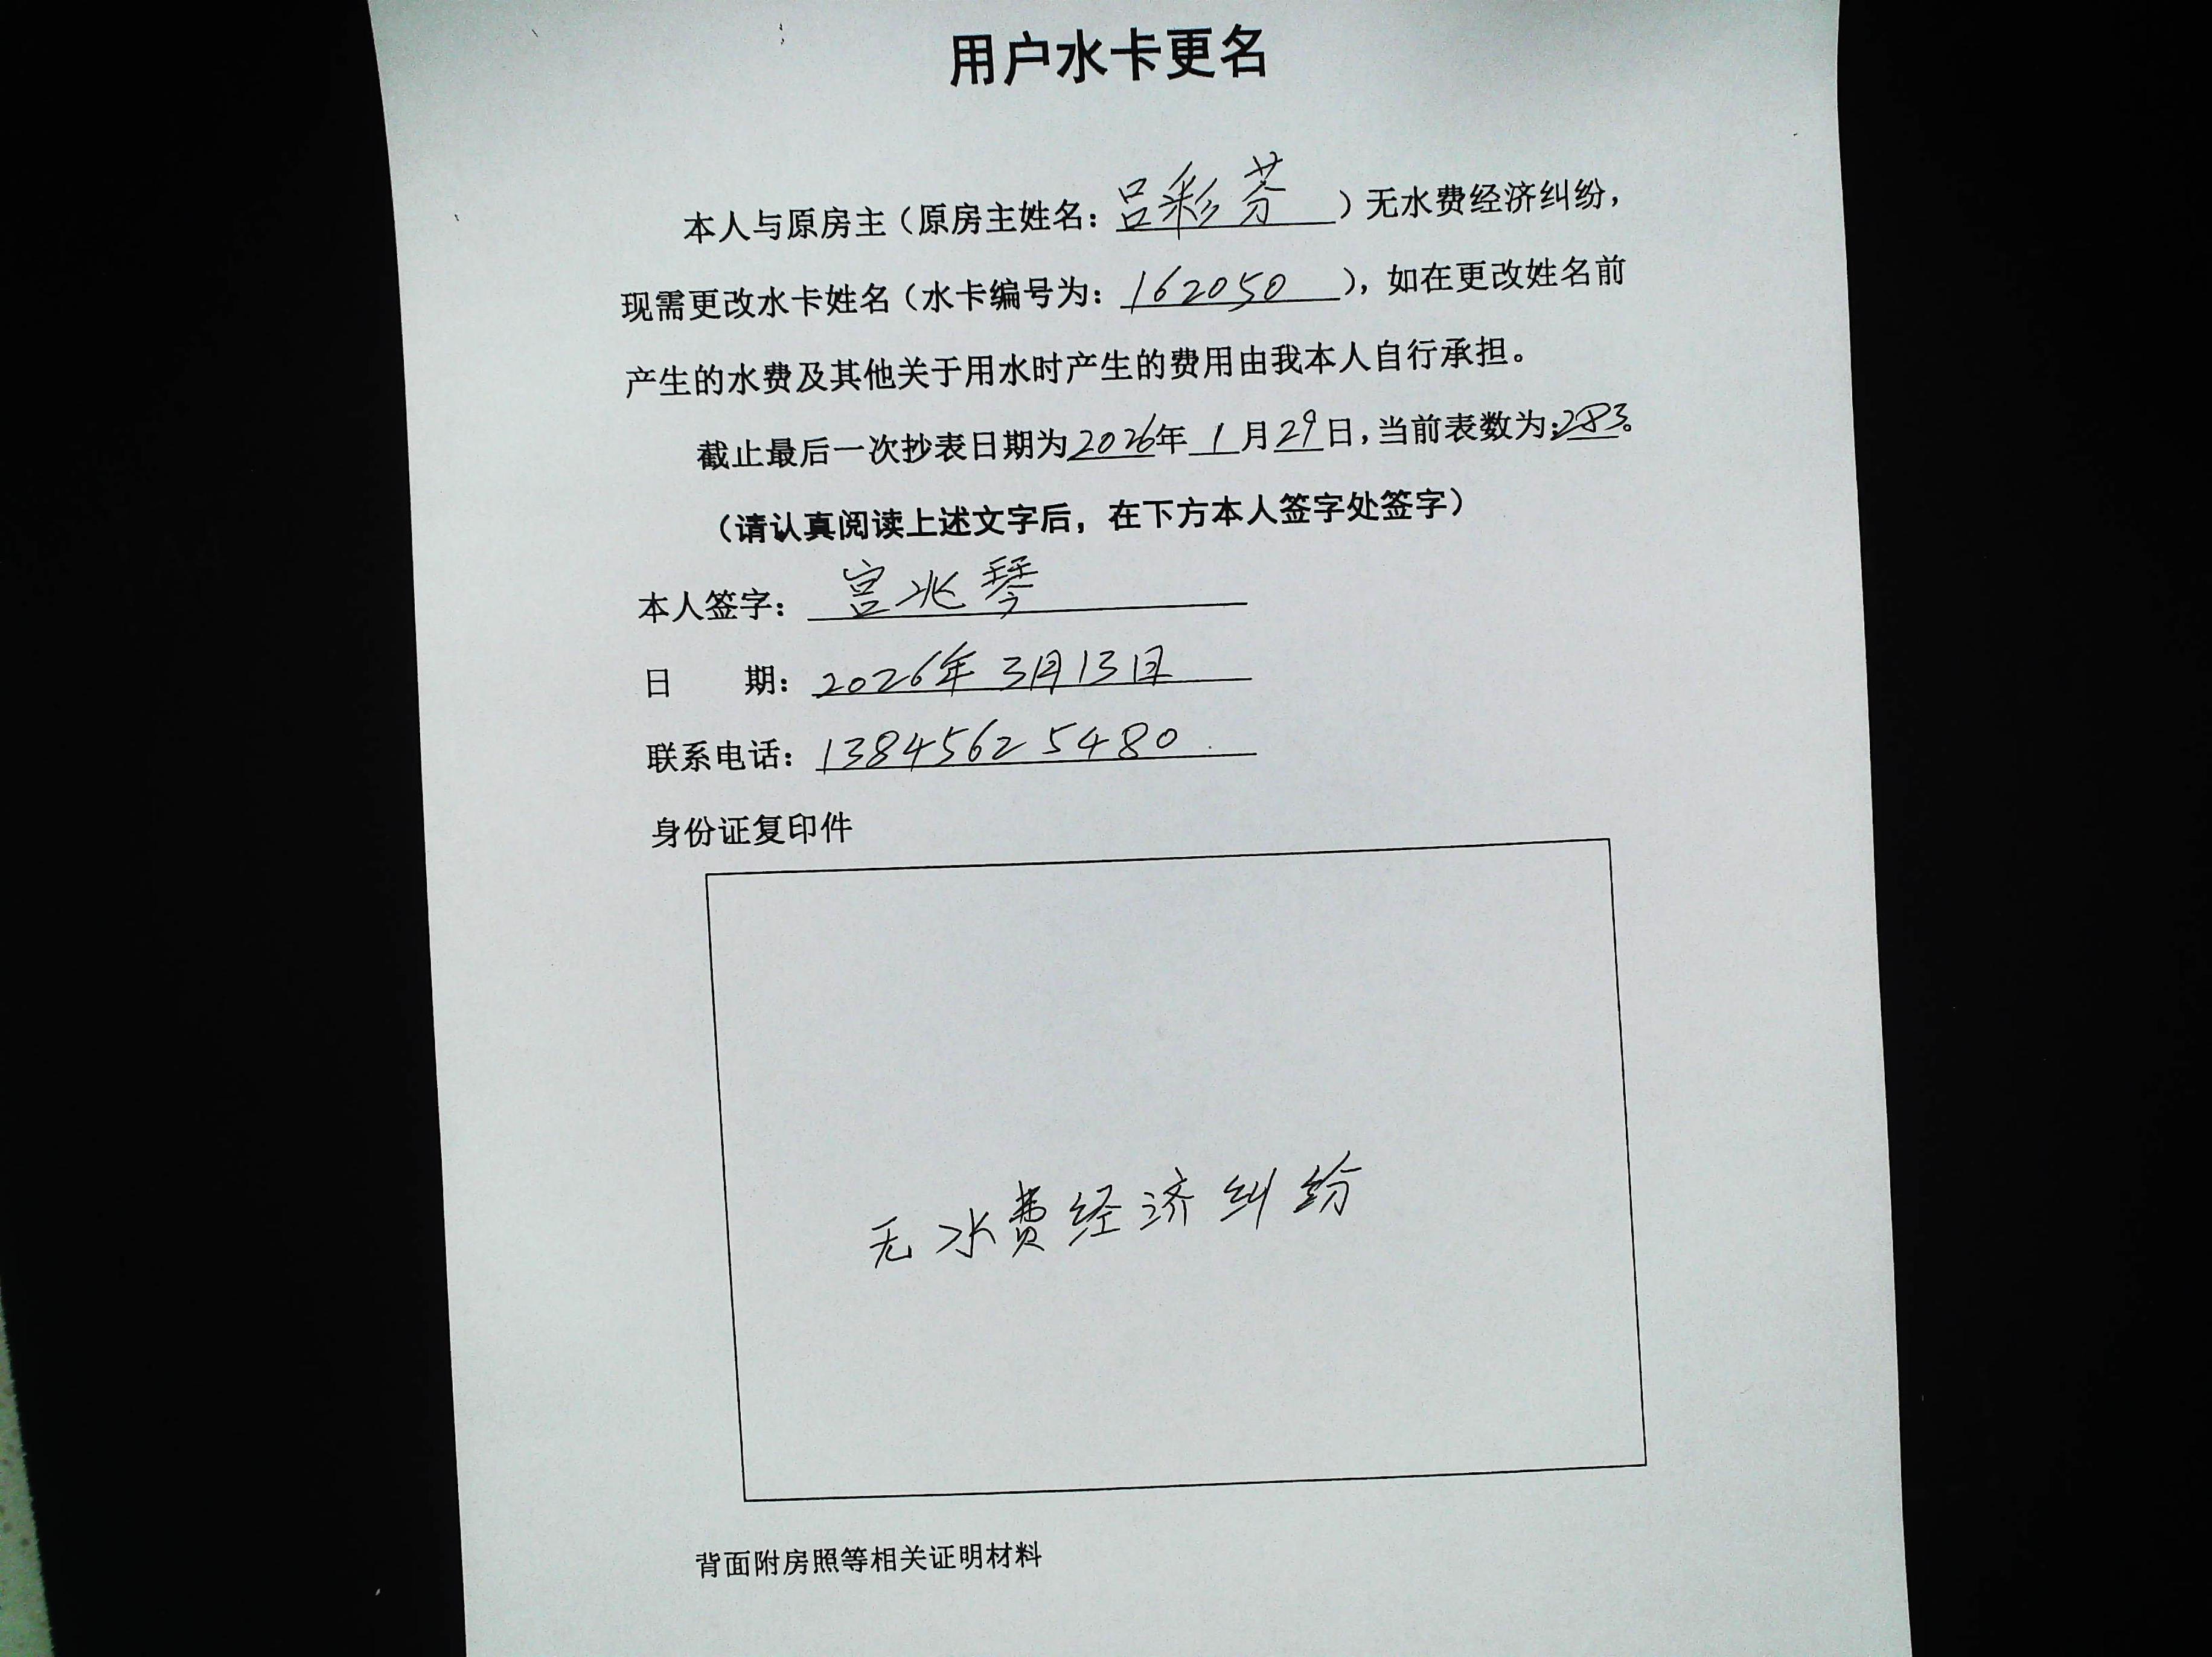 用户水卡更名
本人与原房主（原房主姓名：吕彩芬）无水费经济纠纷，
现需更改水卡姓名（水卡编号为：162050），如在更改姓名前
产生的水费及其他关于用水时产生的费用由我本人自行承担。
截止最后一次抄表日期为2026年1月29日，当前表数为：283。
（请认真阅读上述文字后，在下方本人签字处签字）
本人签字：宫兆琴
日 期：2026年3月13日
联系电话：13845625480
身份证复印件
无水费经济纠纷
背面附房照等相关证明材料